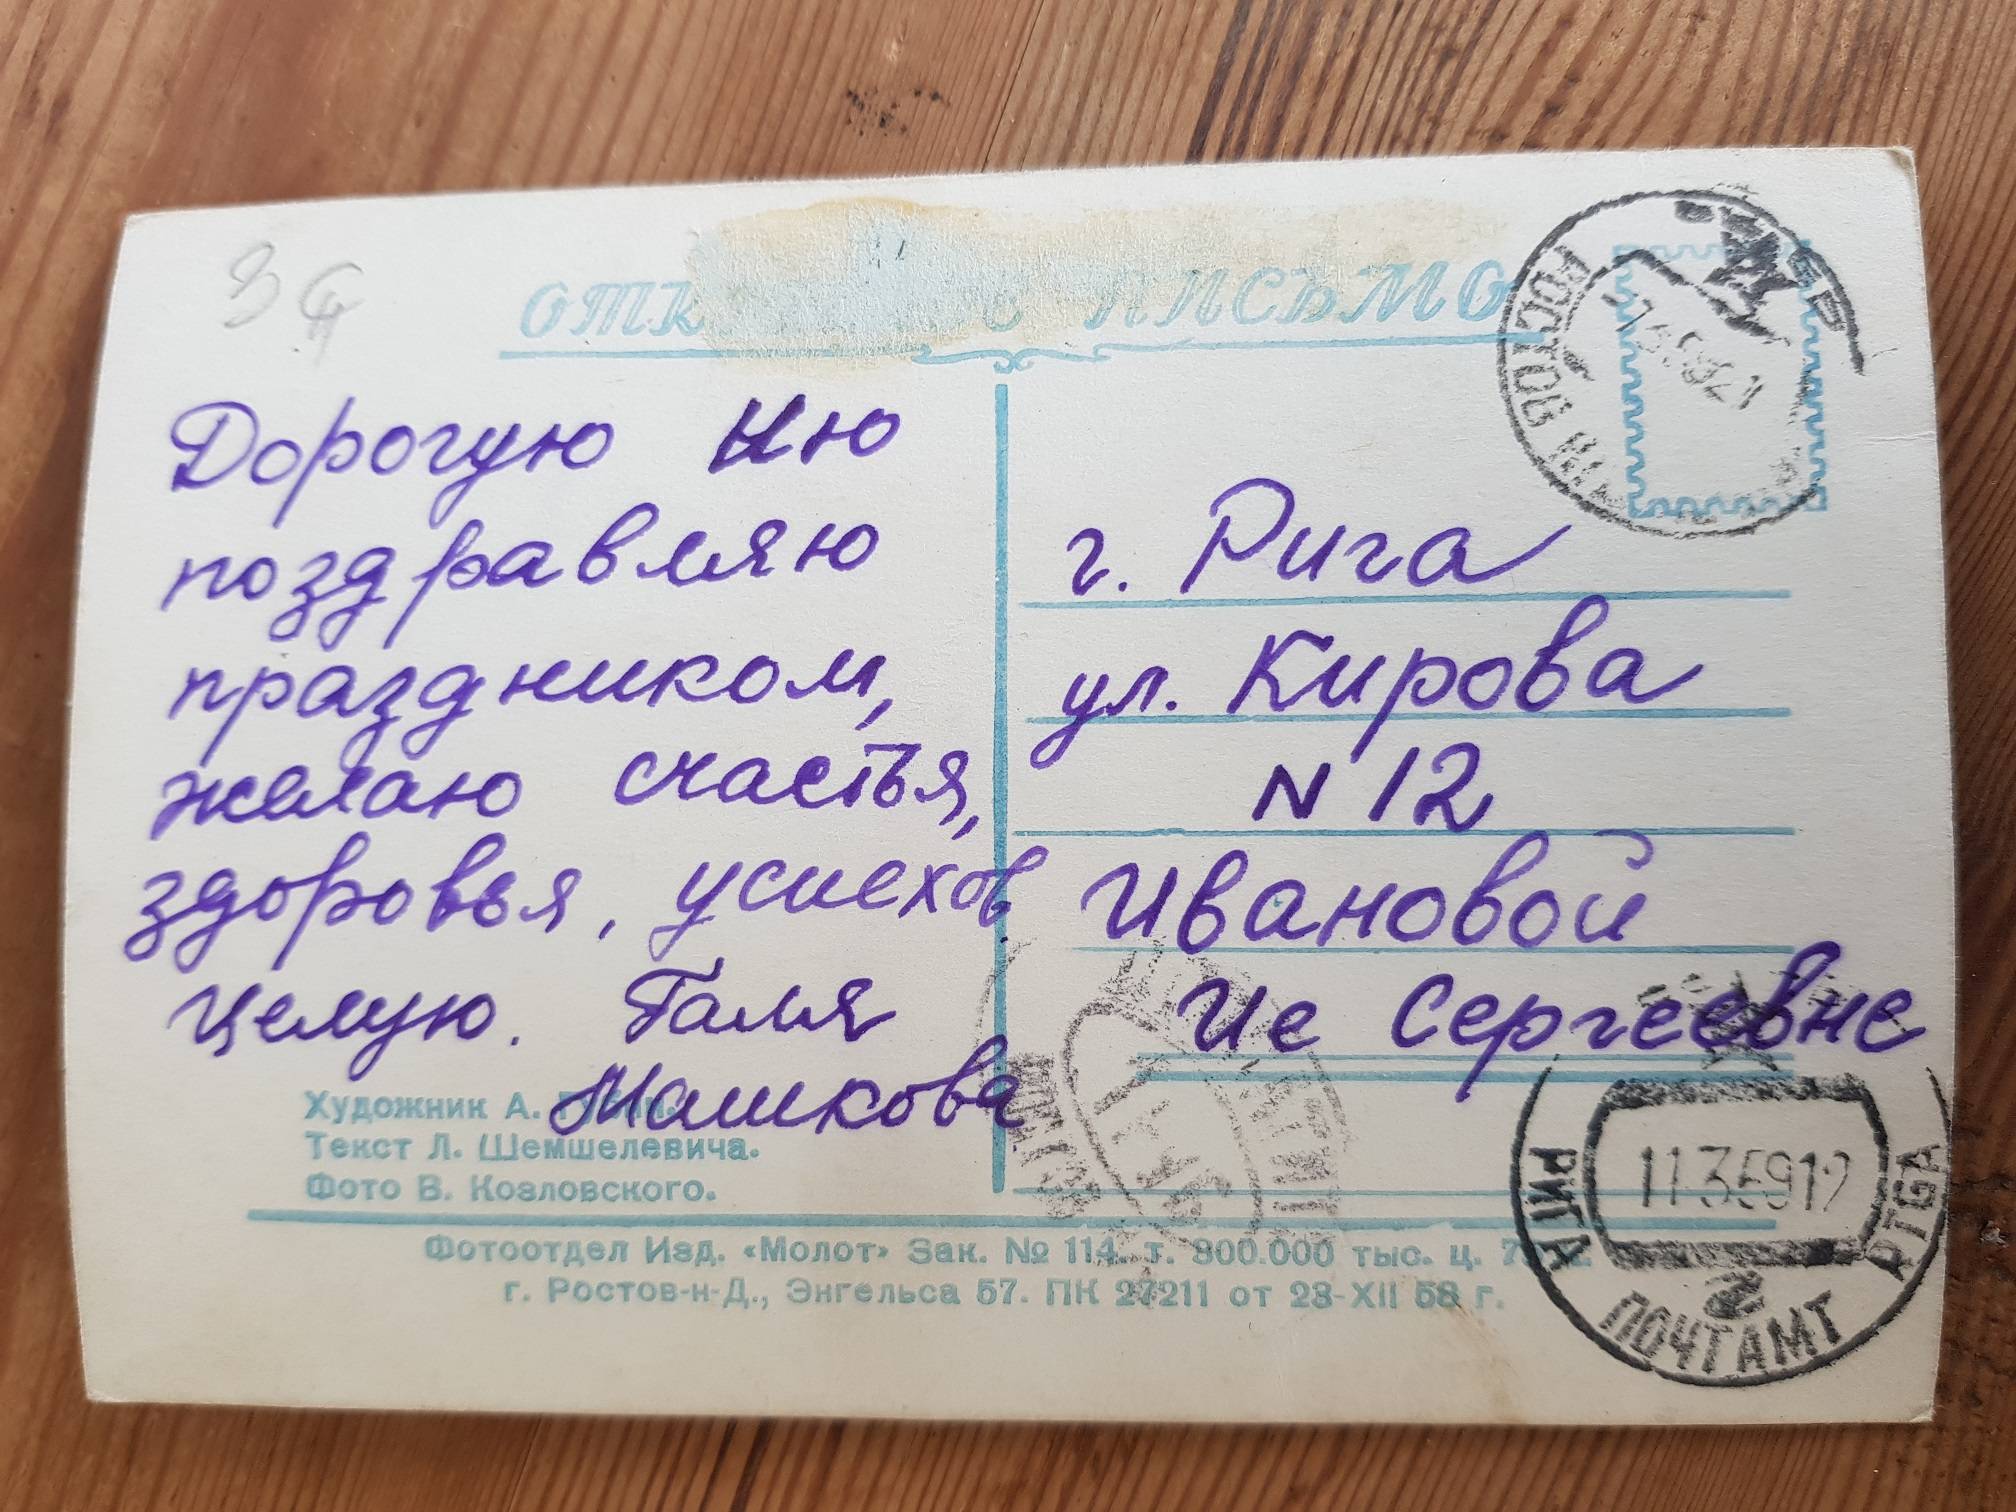 ПИСЬМО
Дорогую Ию
поздравляю
праздником,
желаю счастья,
здоровья, успехов.
целую. Галя
Машкова
г. Рига
ул. Кирова
N 12
Ивановой
Ие Сергеевне
Художник А.
Текст Л. Шемшелевича.
Фото В. Козловского.
Фотоотдел Изд. «Молот» Зак. № 114. т. 300.000 тыс. ц.
г. Ростов-н-Д., Энгельса 57. ПК 27211 от 23-XII 58 г.
РОСТОВ
РИГА
11 3 59 12
RIGA
2
ПОЧТАМТ